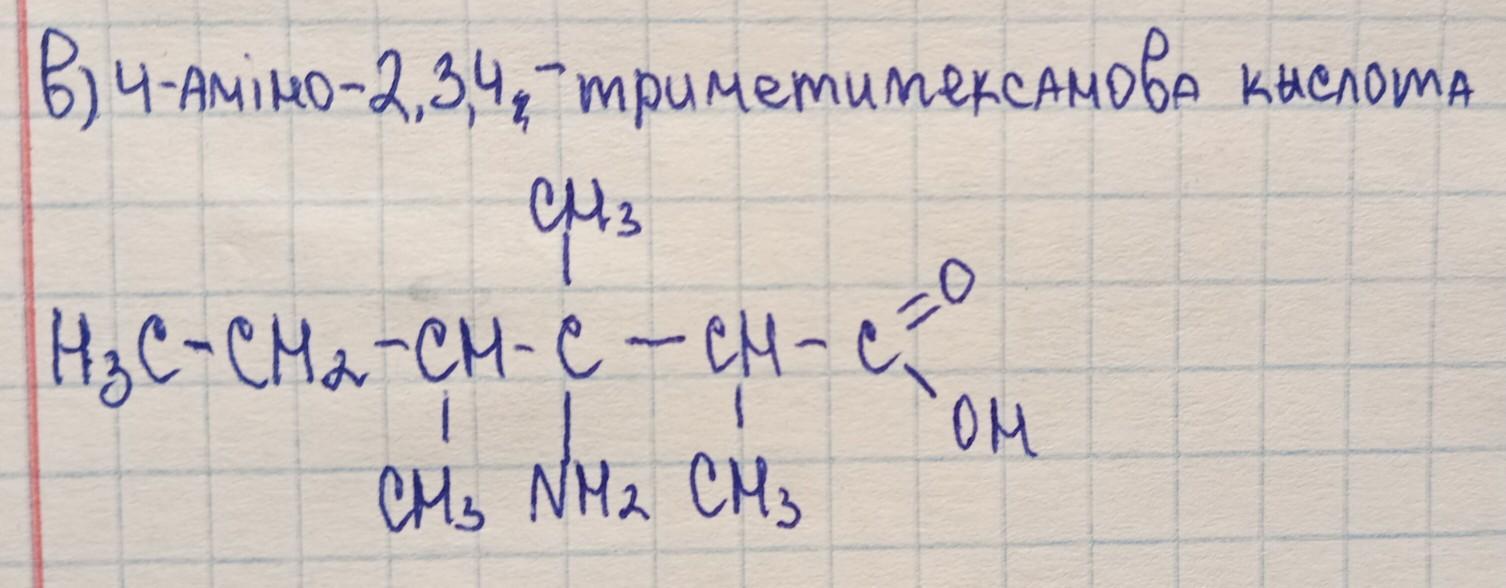 в) 4-аміно-2,3,4,-триметилгексанова кислота
CH3
H3C-CH2-CH-C-CH-C=O
OH
CH3 NH2 CH3